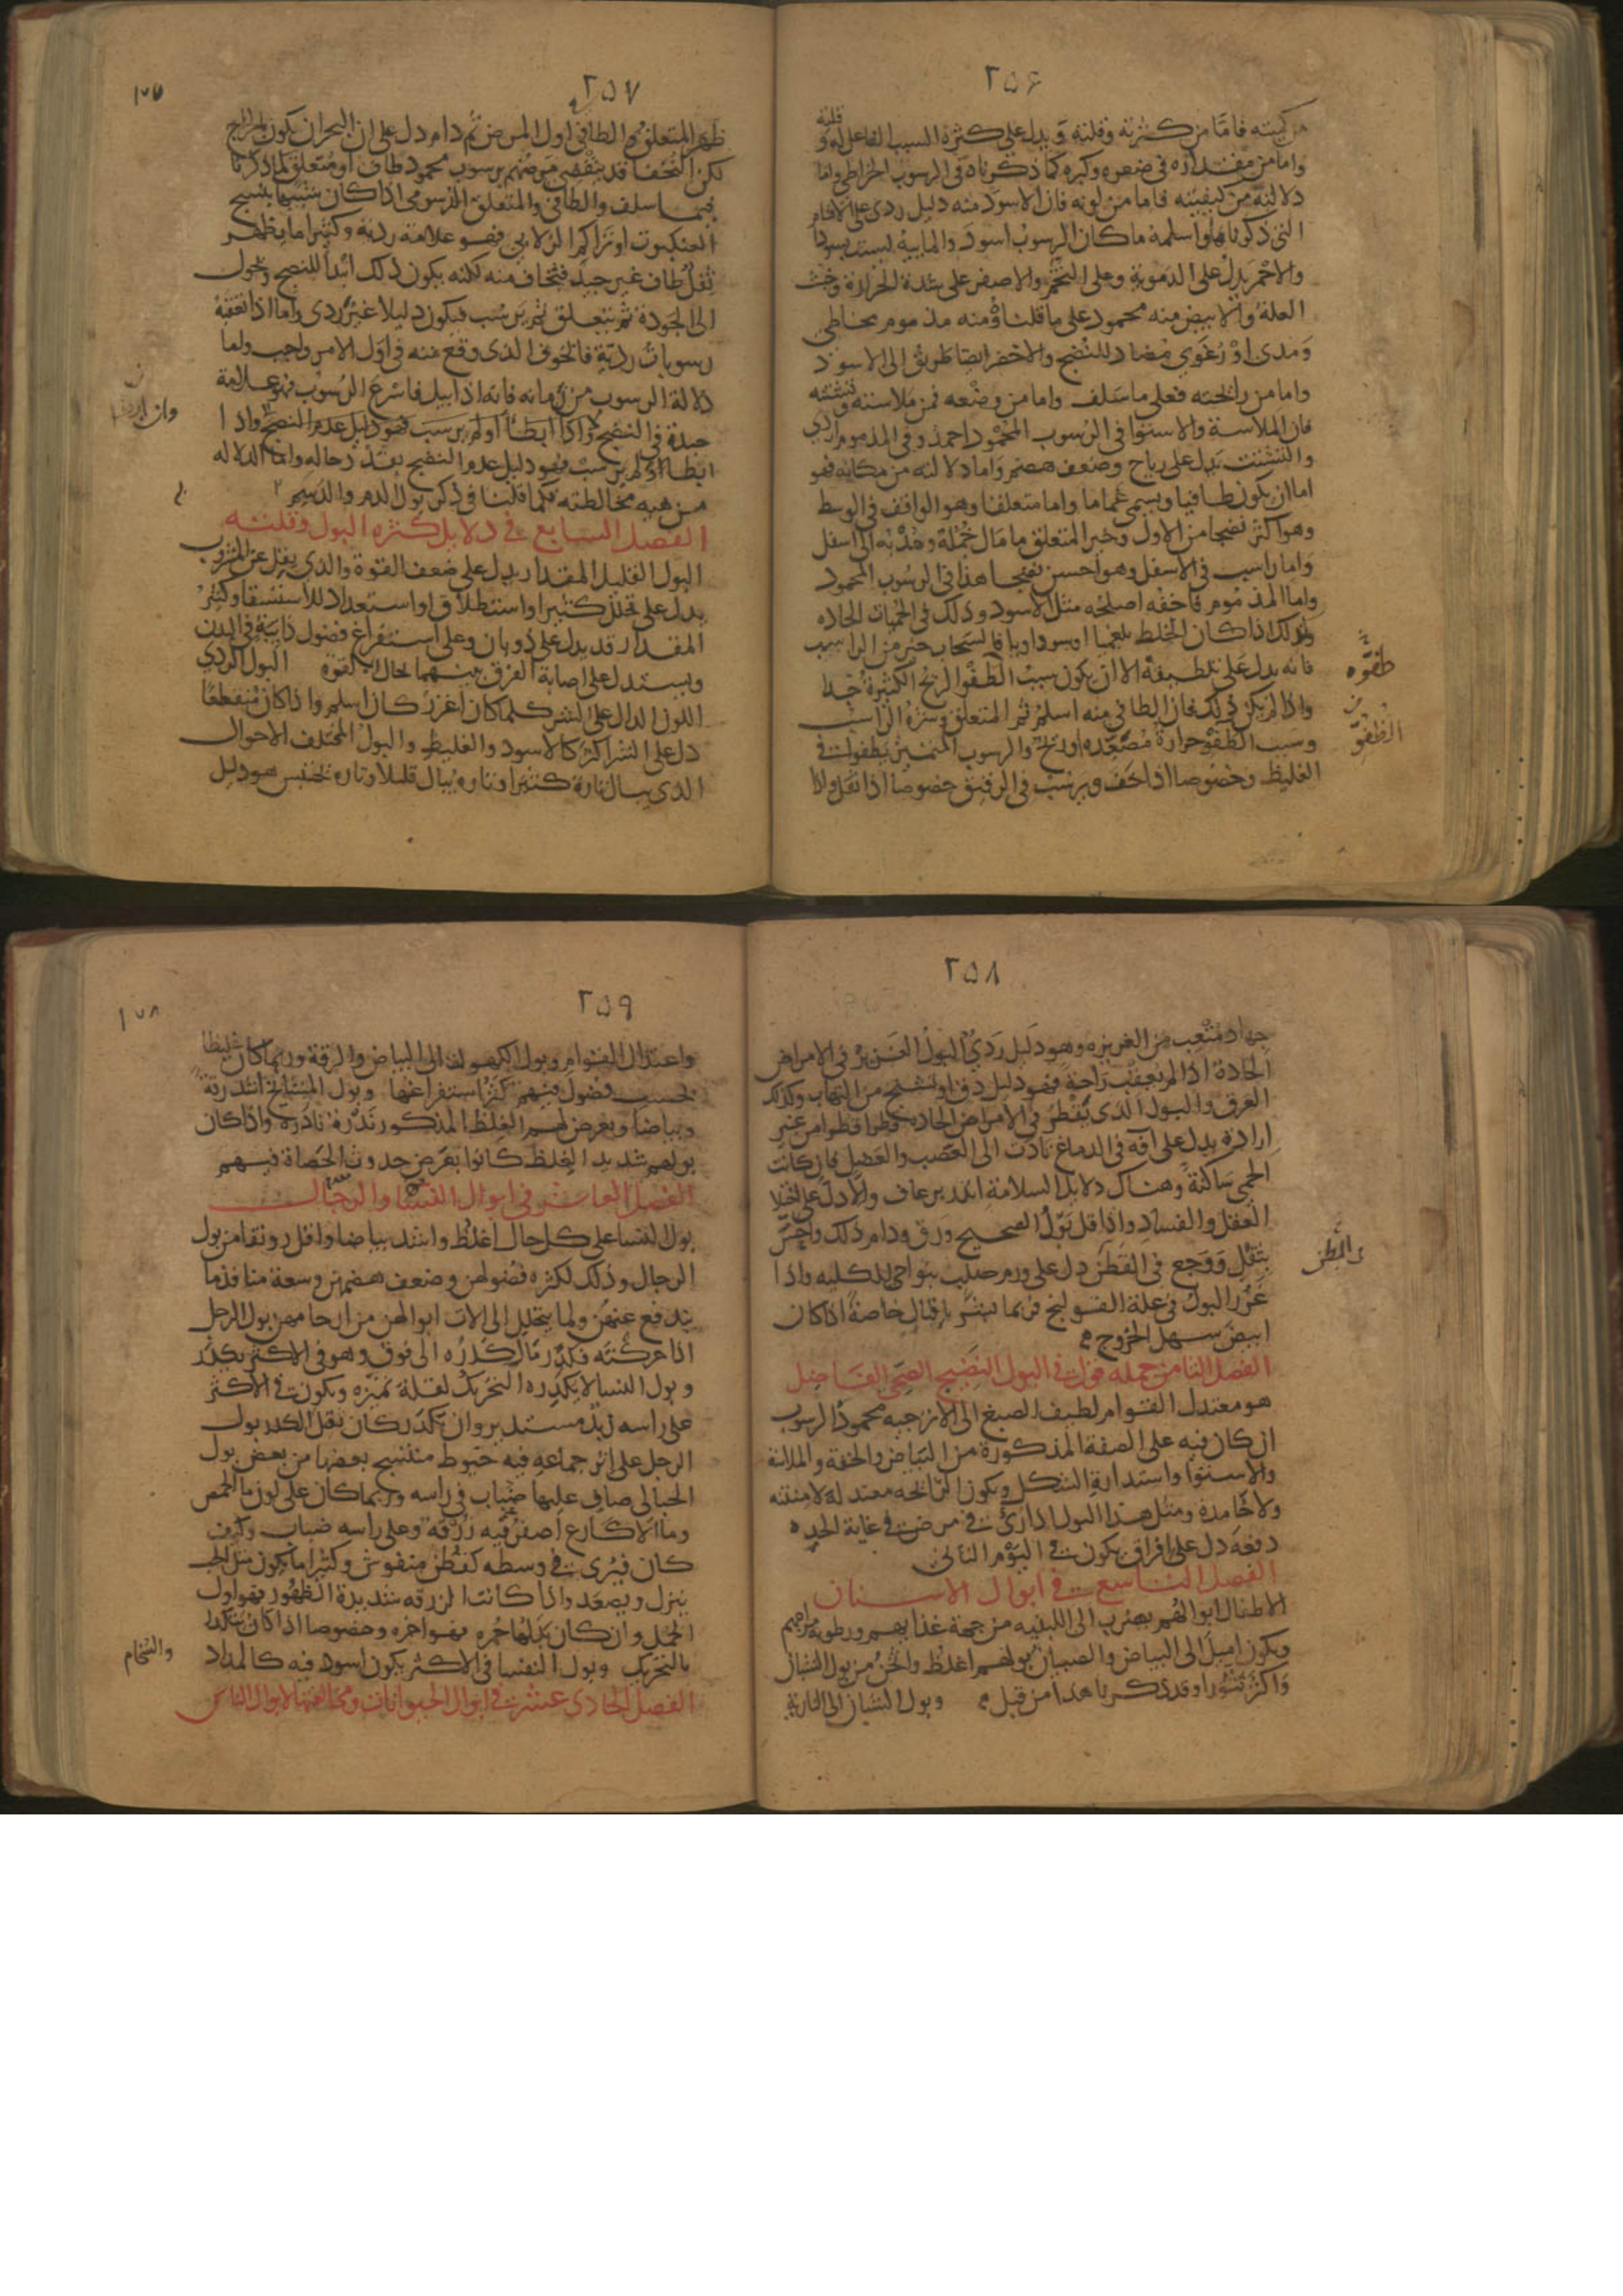 ٢٥٦
من كميته فاما من كثرته وقلته ويدل على كثرة السبب الفاعل له وقلته
واما من مقداره في صغره وكبره كما ذكرناه في الرسوب الخراطي واما
دلالته من كيفيته فاما من لونه فان الاسود منه دليل ردى على الاقسام
التي ذكرناها واسلمه ما كان الرسوب اسود والمايية ليست بسوداء
والاحمر يدل على الدموية وعلى التخم والاصفر على شدة الحرارة وخبث
العلة والابيض منه محمود على ما قلناه ومنه مذموم مخاطي
ومدى او رغوي مضاد للنضج والاخضر ايضا طريق الى الاسود
واما من رائحته فعلى ما سلف واما من وضعه فمن ملاسته وتشتته
فان الملاسة والاستوا في الرسوب المحمود احمد وفي المذموم اردى
والتشتت يدل على رياح وضعف هضم واما دلالته من مكانه فهو
اما ان يكون طافيا ويسمى غماما واما متعلقا وهو الواقف في الوسط
وهو اكثر نضجا من الاول وخير المتعلق ما مال خمله وهدبه الى اسفل
واما راسب في الاسفل وهو احسن نضجا هذا في الرسوب المحمود
واما المذموم فاخفه اصلحه مثل الاسود وذلك في الحميات الحاده
وكذلك اذا كان الخلط بلغميا او سوداويا فالسحاب خير من الراسب
فانه يدل على تلطيفه الا ان يكون سبب الطفو الريح الكثيرة جدا
واذا لم يكن ذلك فان الطافي منه اسلم ثم المتعلق وشره الراسب
وسبب الطفو حرارة مصعده او ريح والرسوب المتميز يطفو في
الغليظ وخصوصا اذا خف ويرسب في الرقيق خصوصا اذا ثقل واذا
طفوه
الطفو
٢٥٧
١٥٧
ظهر المتعلق والطافي اول المرض ثم دام دل على ان البحران يكون بالخراج
لكن النحفا قد ينقضي مرضهم برسوب محمود طاف او متعلق لما ذكرنا
فيما سلف والطافي والمتعلق الدسومي اذا كان شبيها بنسج
العنكبوت او تراكم الزلابي فهو علامة ردية وكثيرا ما يظهر
ثفل طاف غير جيد فتخاف منه لكنه يكون ذلك ابتدا للنضج وتحول
الى الجودة ثم يتعلق ثم يرسب فيكون دليلا غير ردى واما اذا تعقبه
رسوبات ردية فالخوف الذى وقع منه في اول الامر واجب واما
دلالة الرسوب من زمانه فانه اذا بيل فاسرع الرسوب فهو علامة
جيدة في النضج واذا ابطأ او لم يرسب فهو دليل عدم النضج واذا
ابطأ او لم يرسب فهو دليل عدم النضج بقدر حاله واما الدلاله
من هيه مخالطته فكما قلنا في ذكر بول الدم والدسم
الفصل السابع في دلايل كثره البول وقلته
البول القليل المقدار يدل على ضعف القوة والذى يقل عن المشروب
يدل على تحلل كثير او استطلاق او استعداد للاستسقا وكثير
المقدار قد يدل على ذوبان وعلى استفراغ فضول ذايبة في البدن
ويستدل على اصابة الفرق بينهما بحال القوة البول الردي
اللون الدال على الشر كلما كان اغزر كان اسلم واذا كان متقطعا
دل على الشر اكثر كالاسود والغليظ والبول المختلف الاحوال
الذي يبال تارة كثيرا وتاره يبال قليلا وتاره يحتبس هو دليل
٢٥٨
جهاد متعب من الغريزه وهو دليل ردي البول الغزير في الامراض
الحادة اذا لم يعقب راحة فهو دليل دق او تشنج من التهاب وكذلك
العرق والبول الذى يقطر في الامراض الحادة قطرا قطرا من غير
ارادة يدل على افه في الدماغ تادت الى العصب والعضل فان كانت
الحمى ساكنة وهناك دلايل السلامة انذر برعاف والا دل على اختلا
العقل والفساد واذا قل بول الصحيح ورق ودام ذلك واحس
بثقل ووجع في القطن دل على ورم صلب بنواحي الكليه واذا
غزر البول في علة القولنج فربما يبشر باقبال خاصة اذا كان
ابيض سهل الخروج
الفصل الثامن جمله قول في البول النضيج الصحي الفاضل
هو معتدل القوام لطيف الصبغ الى الاترجيه محمود الرسوب
ان كان فيه على الصفة المذكورة من البياض والخفة والملاسة
والاستوا واستدارة الشكل ويكون الرائحه معتدله لا منتنه
ولا خامدة ومثل هذا البول اذا رئى في مرض في غاية الحده
دفعة دل على افراق يكون في اليوم الثاني
الفصل التاسع في ابوال الاسنان
الاطفال ابوالهم يضرب الى اللبنيه من جهة غذايهم ورطوبة مزاجهم
ويكون اميل الى البياض والصبيان بولهم اغلظ واثخن من بول الشبان
واكثر تثورا وقد ذكرنا هذا من قبل وبول الشبان الى النارية
والقطن
٢٥٩
١٥٨
واعتدال القوام وبول الكهول الى البياض والرقة وربما كان غليظا
بحسب فضول فيهم كثر استفراغها وبول المشايخ اشد رقة
وبياضا ويعرض لهم الغلظ المذكور ندرة نادرة واذا كان
بولهم شديد الغلظ كانوا بعرض حدوث الحصاة فيهم
الفصل العاشر في ابوال النسا والرجال
بول النسا على كل حال اغلظ واشد بياضا واقل رونقا من بول
الرجال وذلك لكثره فضولهن وضعف هضمهن وسعة منافذ ما
يندفع عنهن ولما يتحلل الى الات ابوالهن من ارحامهن بول الرجل
اذا حركته فكدر مال كدره الى فوق وهو في الاكثر يكدر
وبول النسا لا يكدره التحريك لقلة تميزه ويكون في الاكثر
على راسه زبد مستدير وان تكدر كان قليل الكدر بول
الرجل على اثر جماعه فيه خيوط منتسج بعضها من بعض بول
الحبالى صاف عليها ضباب في راسه وربما كان على لون ما الحمص
وما الاكارع اصفر فيه زرقة وعلى راسه ضباب وكيف
كان فيرى في وسطه كقطن منفوش وكثيرا ما يكون مثل الحب
ينزل ويصعد واذا كانت الزرقه شديدة الظهور فهو اول
الحمل وان كان بدلها حمره فهو اخره وخصوصا اذا كان يتكدر
بالتحريك وبول النفسا في الاكثر يكون اسود فيه كالمداد
والسخام
الفصل الحادي عشر في ابوال الحيوانات ومخالفتها لابوال الناس